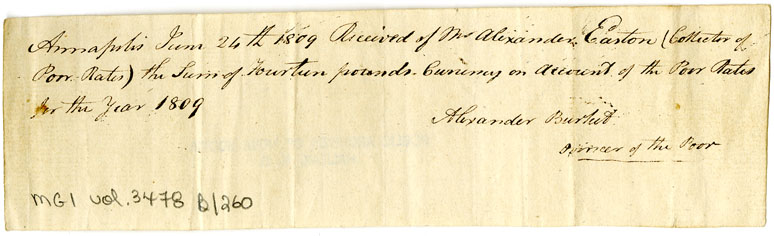 Annapolis June 24th 1809 Received of Mr Alexander Easton (Collector of
Poor Rates) the Sum of Fourteen pounds Currency on Account of the Poor Rates
for the Year 1809
Alexander Burket
Overseer of the Poor
MG1 vol. 3478 B/260